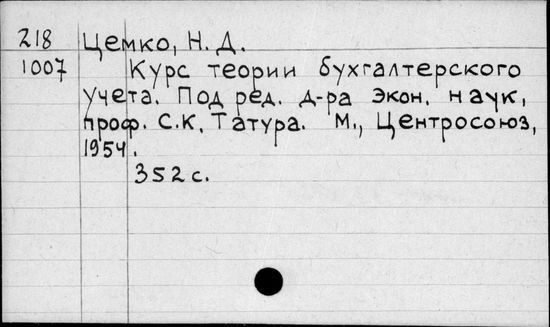 218 Цемко, Н. Д.
1007 Курс теории бухгалтерского
учета. Под ред. д-ра экон. наук,
проф. С.К. Татура. М., Центросоюз,
1954.
352 с.